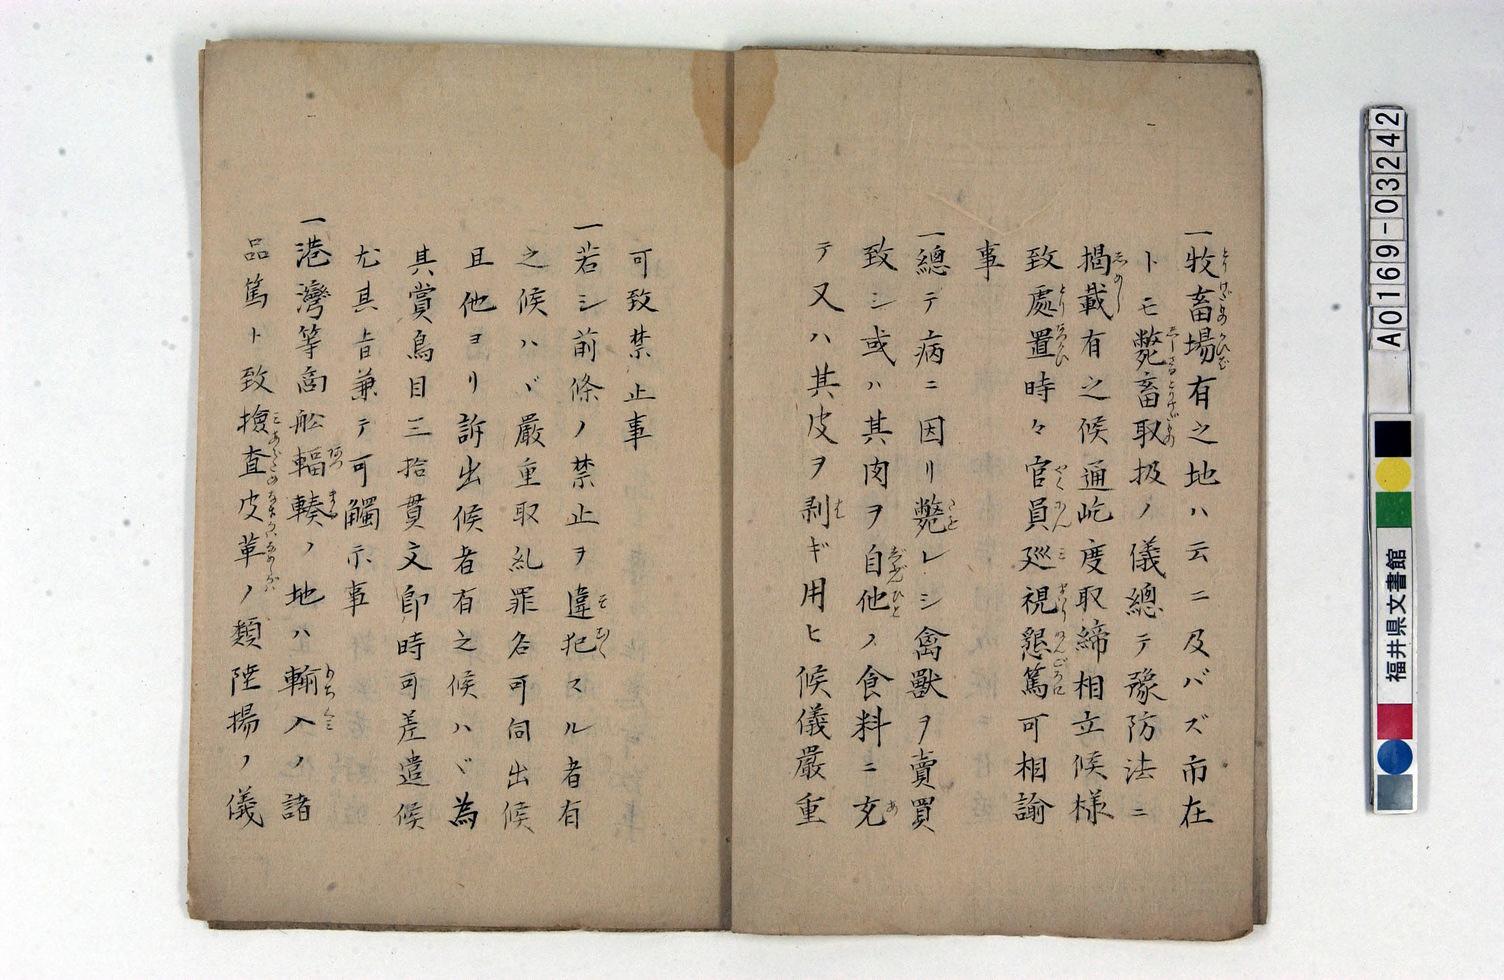 一牧畜場有之地ハ云ニ及バズ市在
トモ斃畜取扱ノ儀總テ豫防法ニ
揭載有之候通屹度取締相立候様
致處置時々官員廵視懇篤可相諭
事
一總テ病ニ因リ斃レシ禽獸ヲ賣買
致シ或ハ其肉ヲ自他ノ食料ニ充
テ又ハ其皮ヲ剥ギ用ヒ候儀嚴重
可致禁止事
一若シ前條ノ禁止ヲ違犯スル者有
之候ハヾ嚴重取乱罪名可伺出候
且他ヨリ訴出候者有之候ハヾ為
其賞鳥目三拾貫文即時可差遣候
尤其旨兼テ可觸示事
一港灣等商舩輻輳ノ地ハ輸入ノ諸
品篤ト致撿査皮革ノ類陸揚ノ儀
A0169-03242
福井県文書館